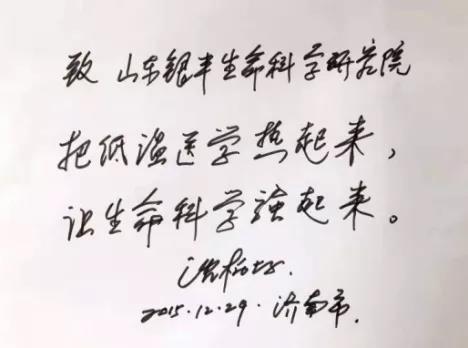 致 山东银丰生命科学研究院
把低温医学热起来，
让生命科学強起来。
2015.12.29. 济南市.